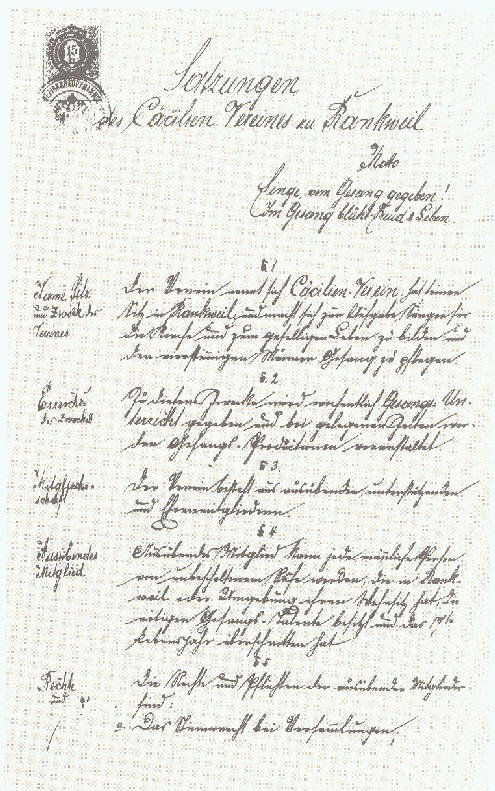 15
Satzungen
des Cäcilien Vereines zu Rankweil
Moto
Singe, wem Gesang gegeben!
Im Gesang blüht Freud & Leben.
§ 1
Name, Sitz
und Zweck des
Vereines
Der Verein nennt sich Cäcilien-Verein, hat seinen
Sitz in Rankweil, und macht sich zur Aufgabe Sänger für
die Kirche und zum geselligen Leben zu bilden und
den vierstimmigen Männer Gesang zu pflegen.
§. 2
des Zweckes
Zu diesem Zwecke wird wochentlich Gesangs Un-
terricht gegeben und bei gelegenen Zeiten wer-
den Gesangs-Produktionen veranstaltet
§ 3.
Mitglied-
schaft
Der Verein besteht aus ausübenden, unterstützenden
und Ehrenmitgliedern.
§ 4
Ausübendes
Mitglied
Ausübendes Mitglied kann jede männliche Person
von unbescholtenem Rufe werden, die in Rank-
weil oder Umgebung ihren Wohnsitz hat, die
nötigen Gesangs-Talente besitzt und das
Lebensjahr überschritten hat
§ 5
Rechte
und
Die Rechte und Pflichten der ausübenden Mitglieder
sind:
a. Das Stimmrecht bei Versammlungen,